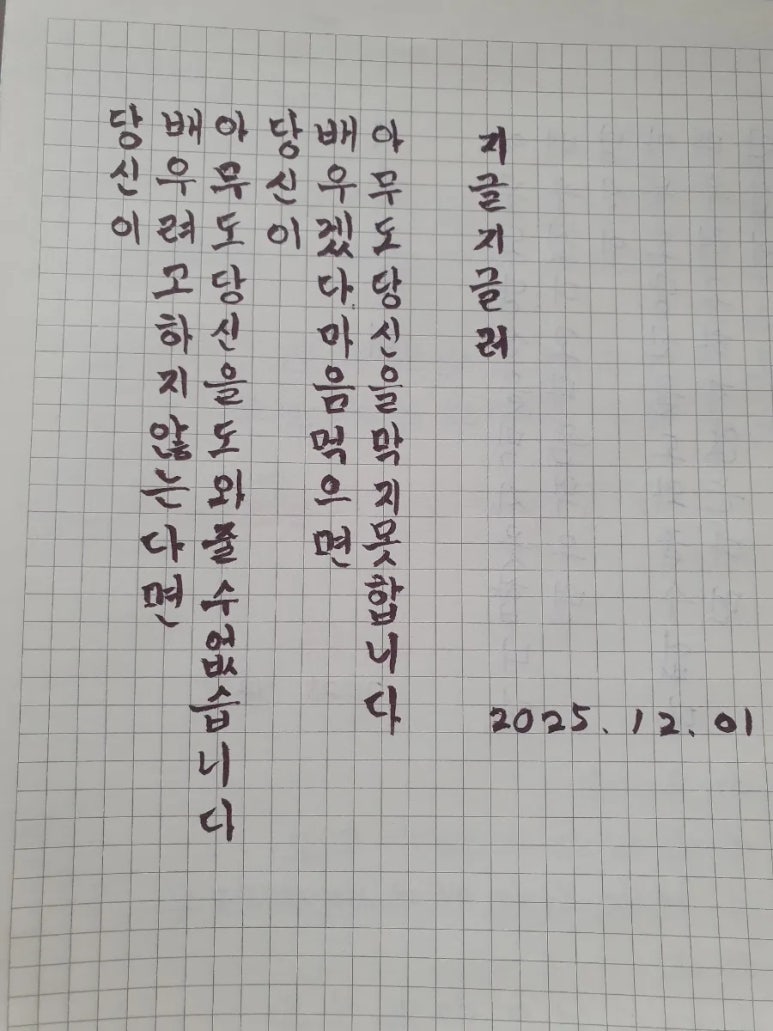 당신이
배우려고하지않는다면
아무도당신을도와줄수없습니다
당신이
배우겠다마음먹으면
아무도당신을막지못합니다
지글지글러
2025.12.01